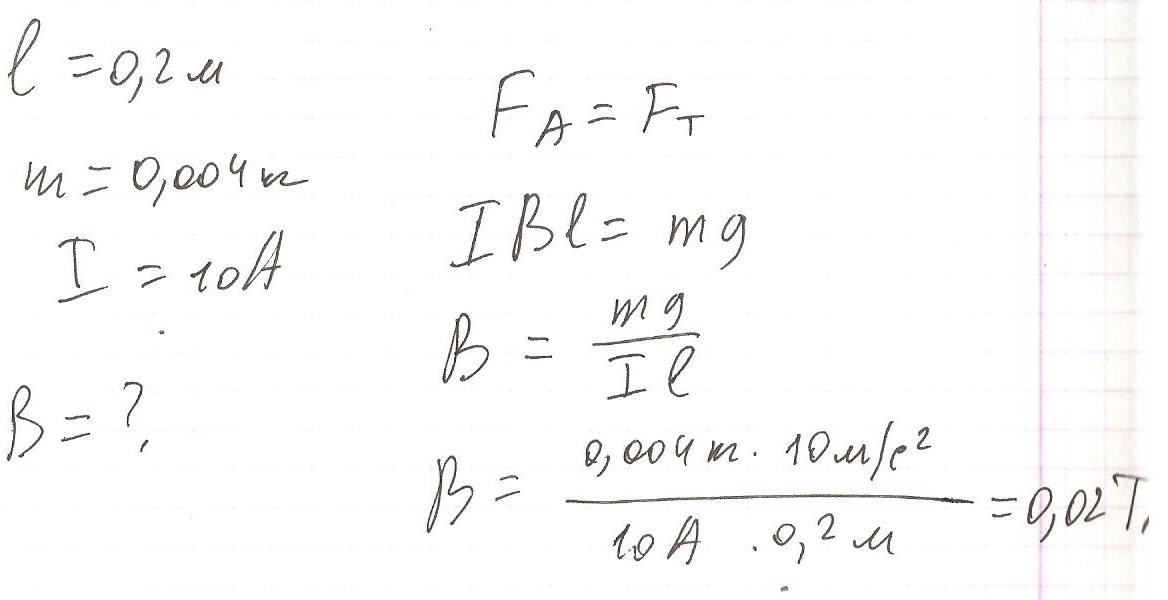 l = 0,2 м
m = 0,004 кг
I = 10 А
B = ?
F_А = F_Т
I B l = m g
B = \frac{m g}{I l}
B = \frac{0,004 кг · 10 м/с²}{10 А · 0,2 м} = 0,02 Т